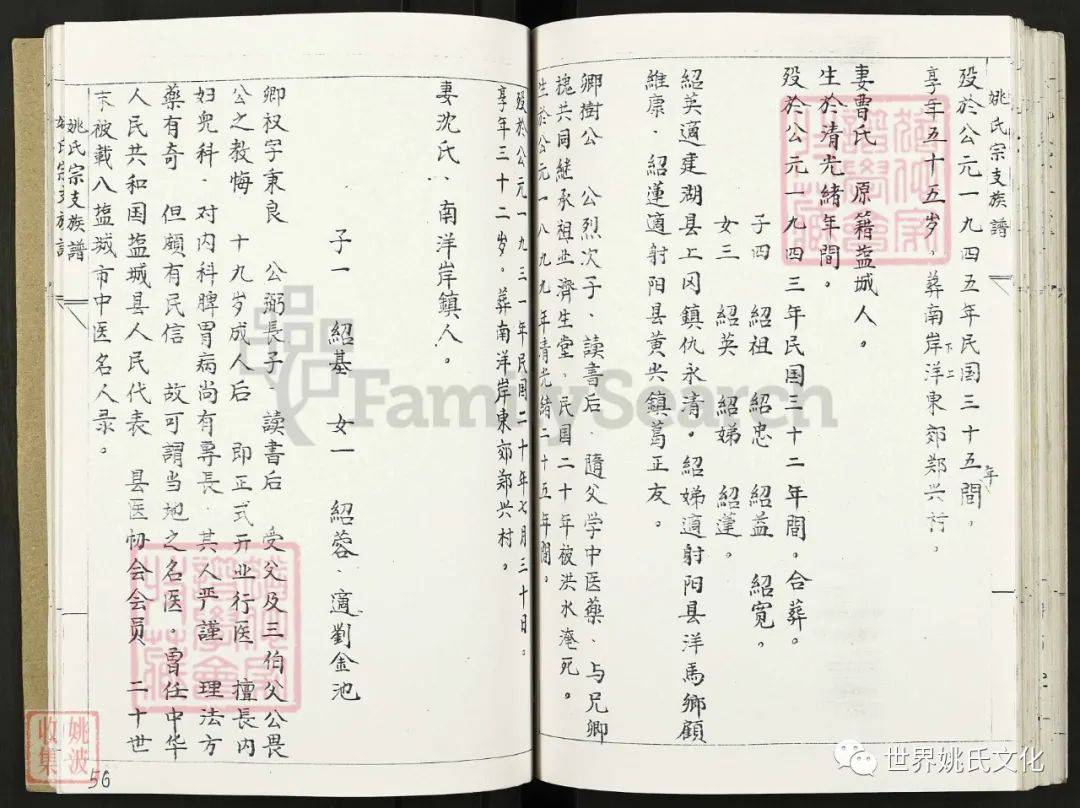 姚氏宗支族譜
殁於公元一九四五年民国三十五間，
年
享年五十五岁，葬南岸洋東郊郑兴村，
下上
妻曹氏 原籍盐城人。
生於清光緒年間。
殁於公元一九四三年民国三十二年間。合葬。
子四 紹祖 紹忠 紹益 紹寛，
女三 紹英 紹娣 紹蓮。
紹英適建湖县上冈鎮仇永清。紹娣適射阳县洋馬鄉顧
維康．紹蓮適射阳县黄尖鎮葛正友。
卿樹公 公烈次子、读書后．隨父学中医藥、与兄卿
槐共同継承祖业濟生堂，民国二十年被洪水淹死。
生於公元一八九九年清光緒二十五年間。
殁於公元一九三一年民国二十年七月三十日。
享年三十二岁。葬南洋岸東郊郑兴村。
妻沈氏、南洋岸鎮人。
子一 紹基 女一 紹蓉、適劉金池
卿权字秉良 公弼長子、读書后 受父及三伯父公畏
公之教悔 十九岁成人后 即正式开业行医 擅長内
妇児科．对内科脾胃病尚有專長．其人严謹 理法方
藥有奇 但頗有民信 故可謂当地之名医。曾任中华
人民共和国盐城县人民代表 县医协会会員 二十世
下被載八盐城市中医名人录。
姚氏宗支族譜
56
姚波
收集
FamilySearch
世界姚氏文化